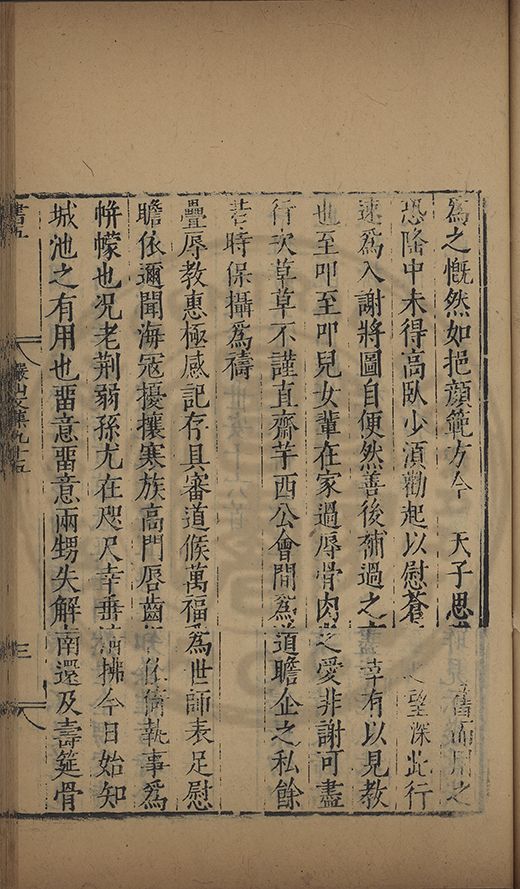 為之慨然如挹顏範方今　天子思舊而用之
恐隆中未得高臥少湏勸起以慰蒼之望深此行
速為入謝將圖自便然善後補過之幸有以見教
也至叩至叩兒女輩在家過辱骨肉之愛非謝可盡
行次草草不謹直齋芋西公會間為道瞻企之私餘
若時保攝為禱
疊辱教惠極感記存具審道候萬福為世師表足慰
瞻依邇聞海冦擾攘寒族高門唇齒依倚執事為
帡幪也况老荆弱孫尤在咫尺幸垂拂今日始知
城池之有用也畱意畱意兩甥失解南還及壽筵骨
書五
儼山文集九十五
三